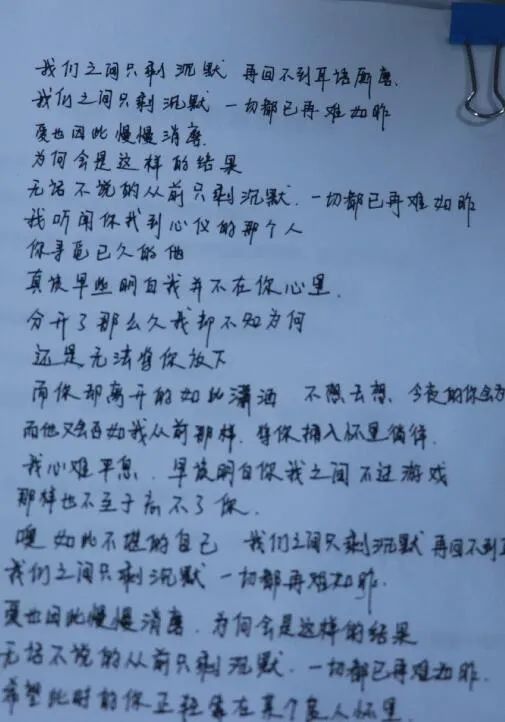 我们之间只剩沉默 再回不到耳语厮磨.
我们之间只剩沉默 一切都已再难如昨
爱也因此慢慢消磨.
为何会是这样的结果
无话不说的从前只剩沉默. 一切都已再难如昨
我听闻你找到心仪的那个人
你寻觅已久的他
真该早些明白我并不在你心里.
分开了那么久我却不知为何
还是无法将你放下
而你却离开的如此潇洒 不愿去想. 今夜的你会
而他又会否如我从前那样. 将你拥入怀里
我心难平息. 早该明白你我之间不过游戏
那样也不至于离不了你.
噢 如此不堪的自己 我们之间只剩沉默 再回不到
我们之间只剩沉默 一切都再难如昨.
爱也因此慢慢消磨. 为何会是这样的结果
无话不说的从前只剩沉默. 一切都已再难如昨.
希望此时的你正轻靠在某个良人怀里